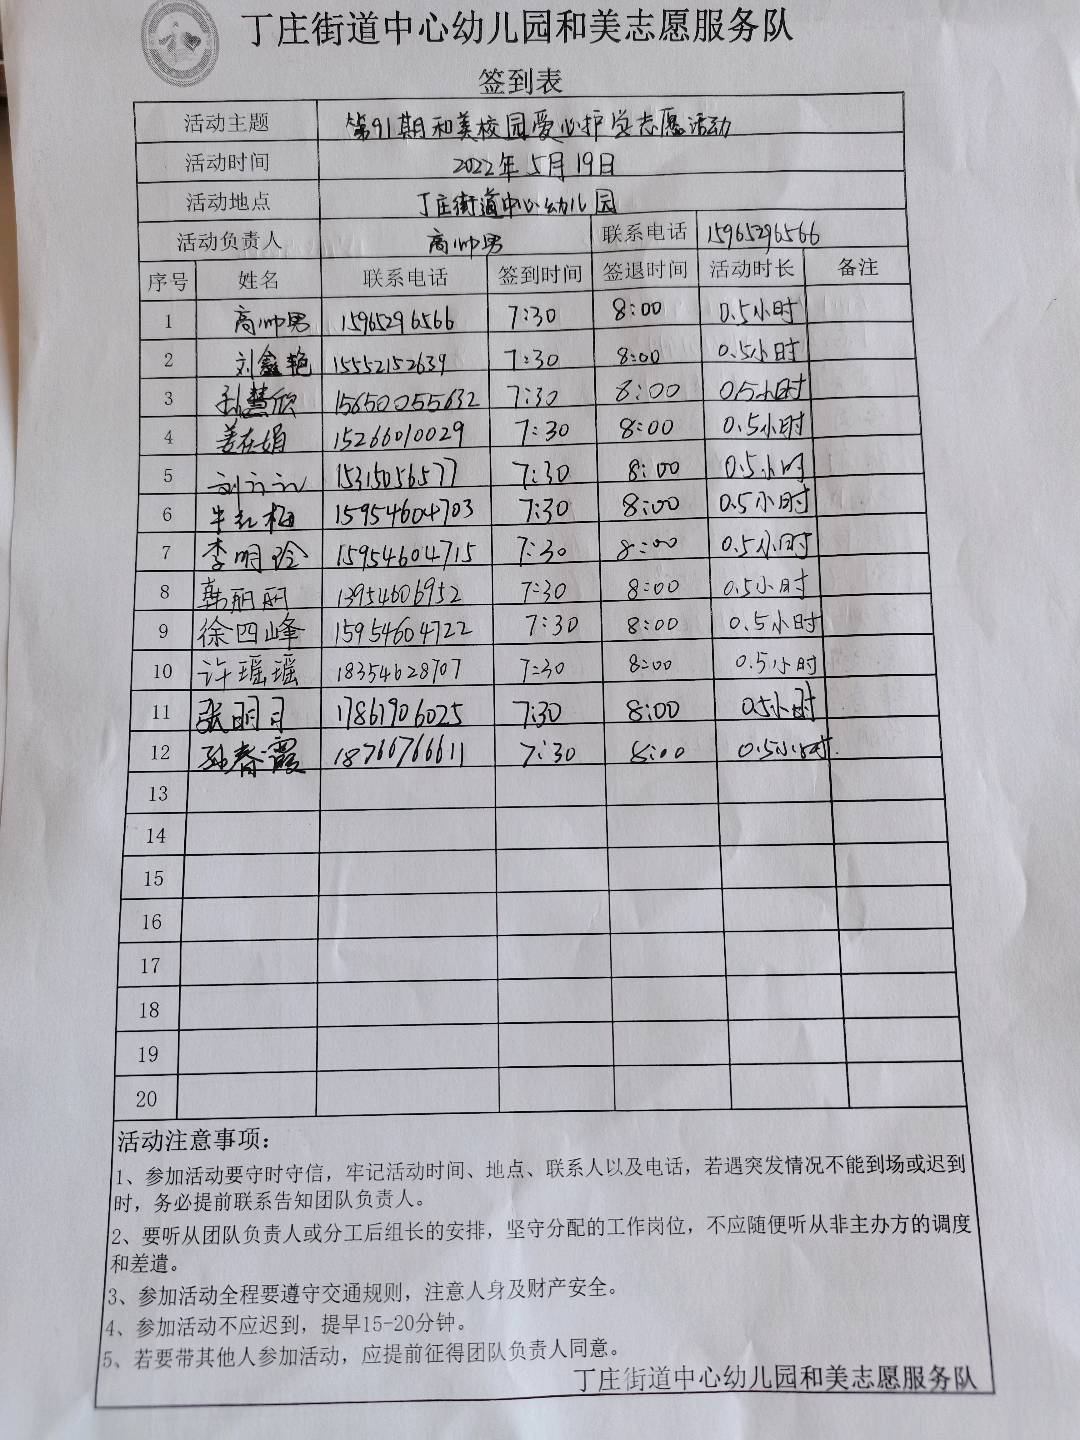 丁庄街道中心幼儿园和美志愿服务队
签到表
活动主题 第91期和美校园爱心护学志愿活动
活动时间 2022年5月19日
活动地点 丁庄街道中心幼儿园
活动负责人 高帅男 联系电话 15965296566
序号 姓名 联系电话 签到时间 签退时间 活动时长 备注
1 高帅男 15965296566 7:30 8:00 0.5小时
2 刘鑫艳 15552152639 7:30 8:00 0.5小时
3 孙慧欣 15650055632 7:30 8:00 0.5小时
4 姜在娟 15266010029 7:30 8:00 0.5小时
5 刘 15315056577 7:30 8:00 0.5小时
6 牛红梅 15954604703 7:30 8:00 0.5小时
7 李明玲 15954604715 7:30 8:00 0.5小时
8 韩丽丽 13954606952 7:30 8:00 0.5小时
9 徐四峰 15954604722 7:30 8:00 0.5小时
10 许瑶瑶 18354628707 7:30 8:00 0.5小时
11 张明月 17861906025 7:30 8:00 0.5小时
12 孙春霞 18766766611 7:30 8:00 0.5小时
13
14
15
16
17
18
19
20
活动注意事项：
1、参加活动要守时守信，牢记活动时间、地点、联系人以及电话，若遇突发情况不能到场或迟到
时，务必提前联系告知团队负责人。
2、要听从团队负责人或分工后组长的安排，坚守分配的工作岗位，不应随便听从非主办方的调度
和差遣。
3、参加活动全程要遵守交通规则，注意人身及财产安全。
4、参加活动不应迟到，提早15-20分钟。
5、若要带其他人参加活动，应提前征得团队负责人同意。
丁庄街道中心幼儿园和美志愿服务队